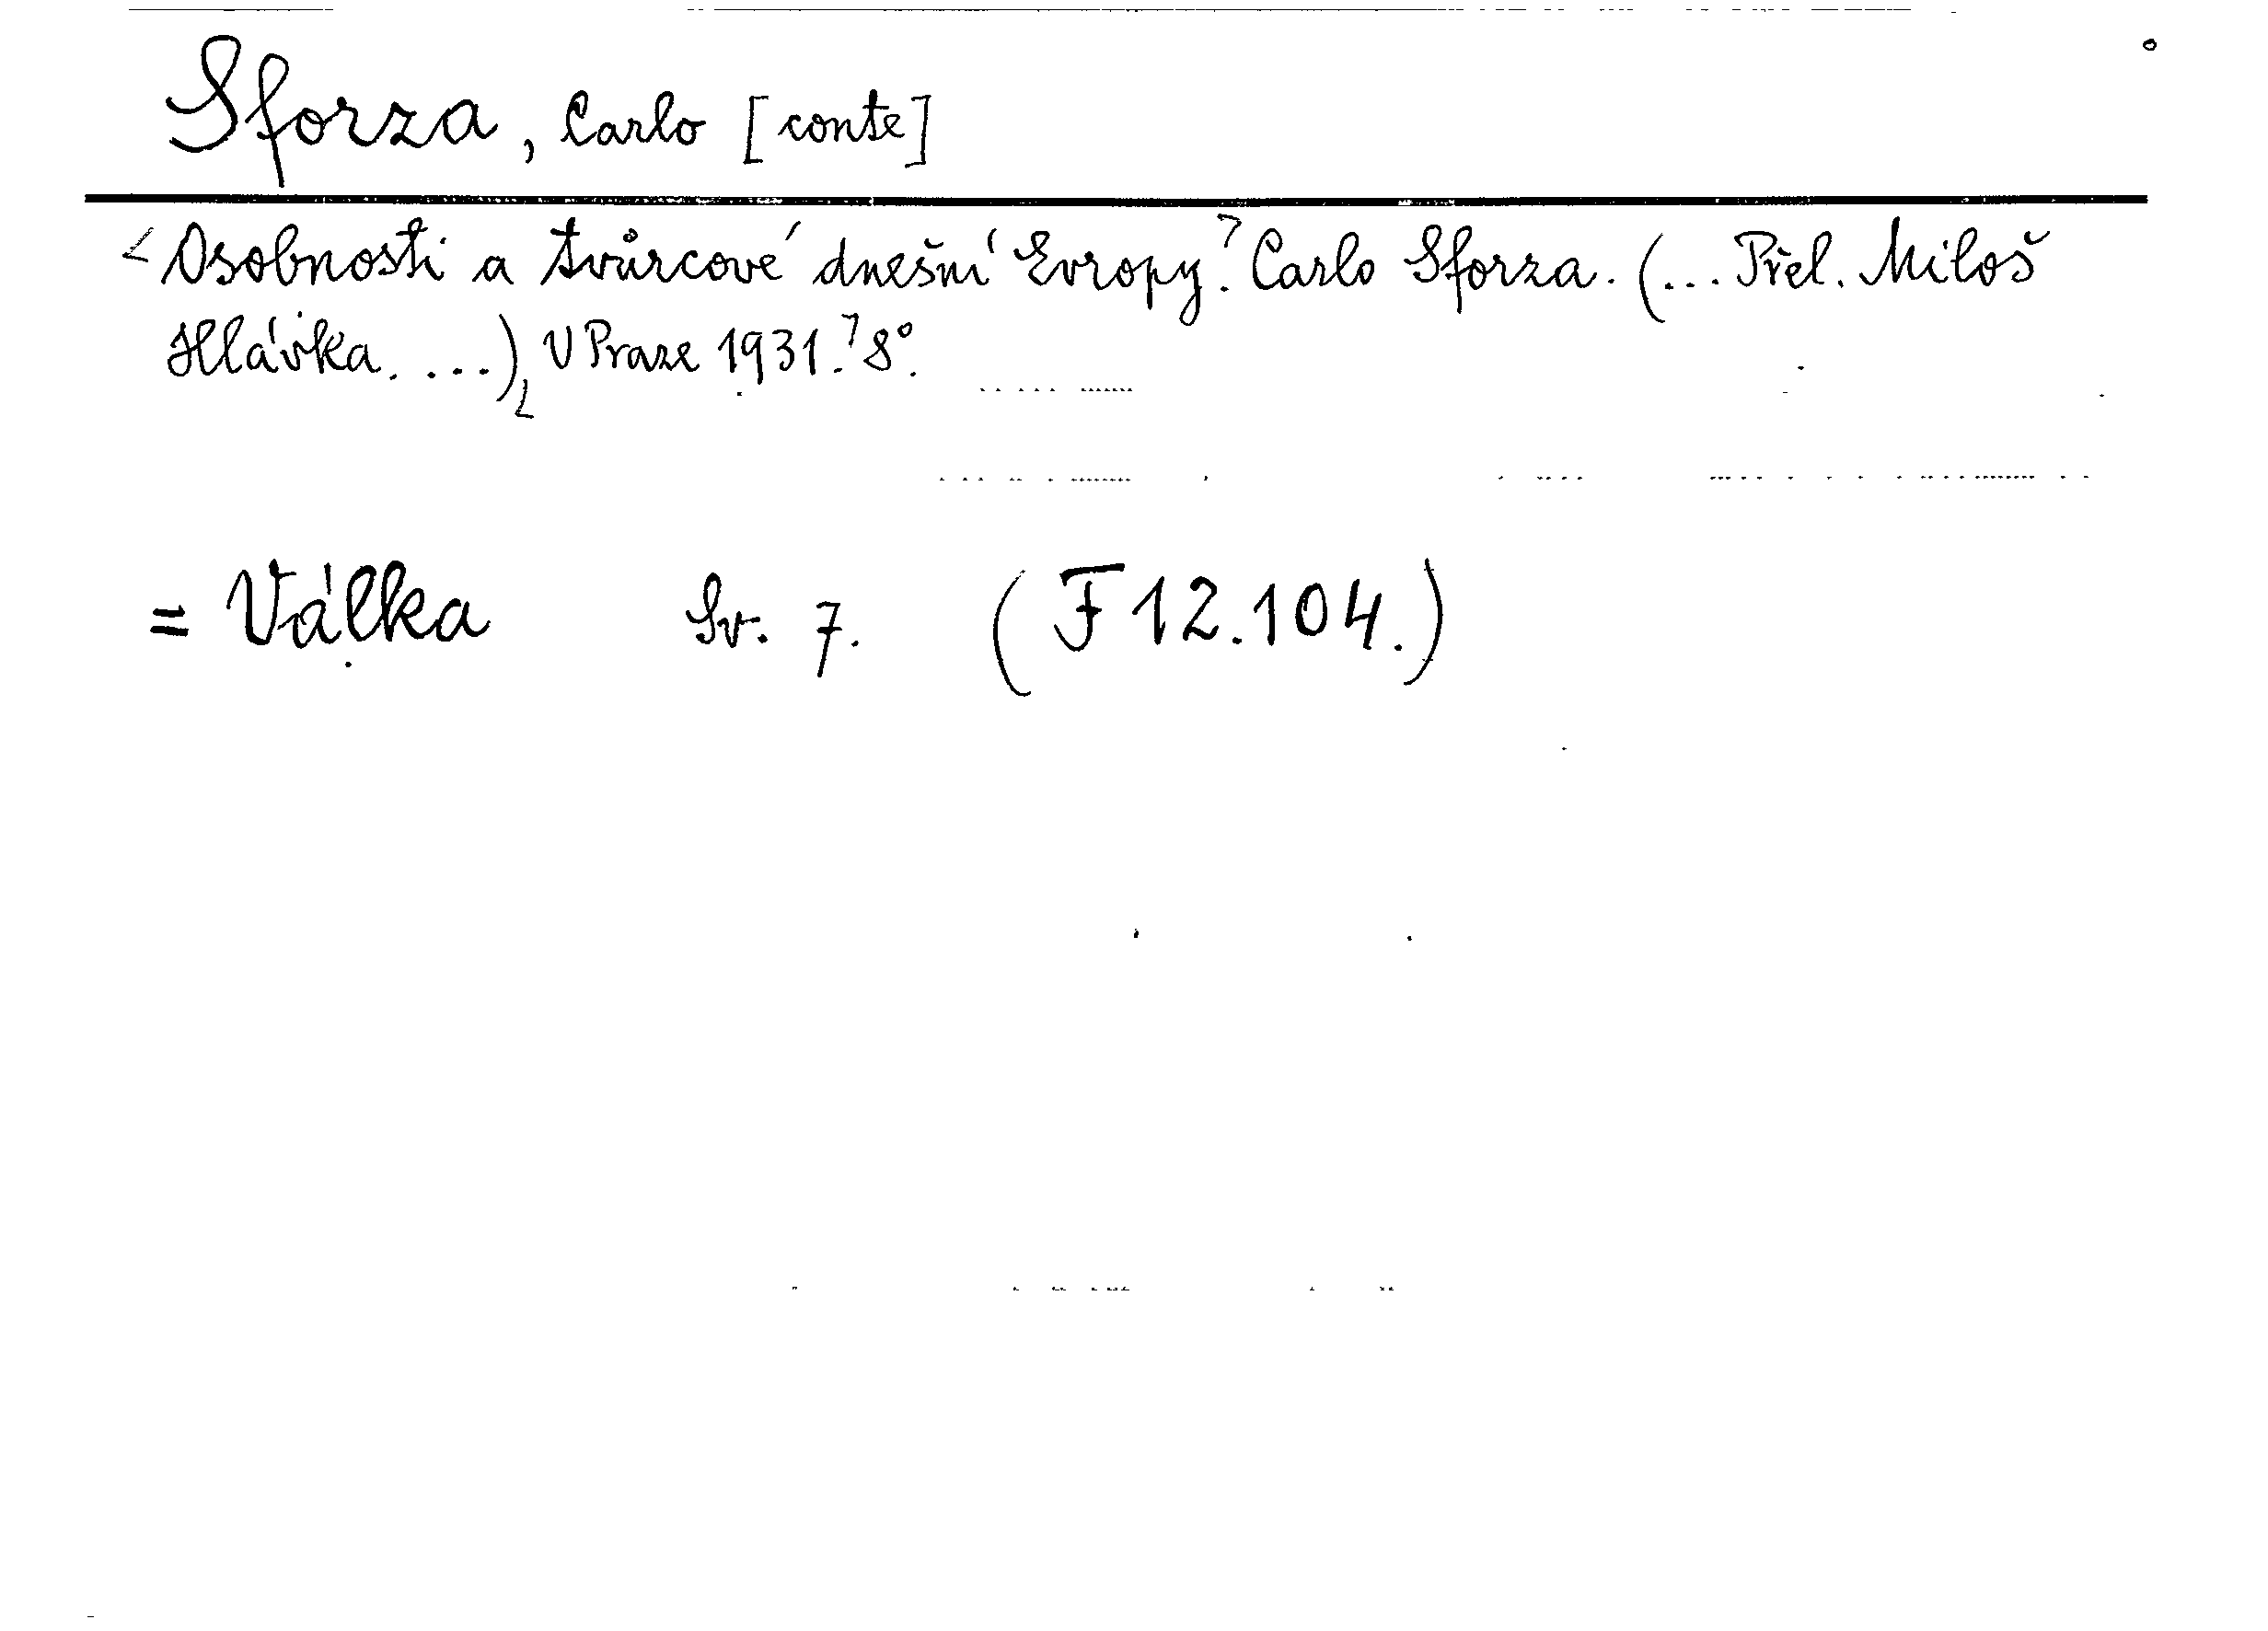 Sforza, Carlo [conte]
Osobnosti a tvůrcové dnešní Evropy. Carlo Sforza. (... Přel. Miloš
Hlávka. ...) V Praze 1931. 8°.
= Válka Sv. 7. (F 12.104.)